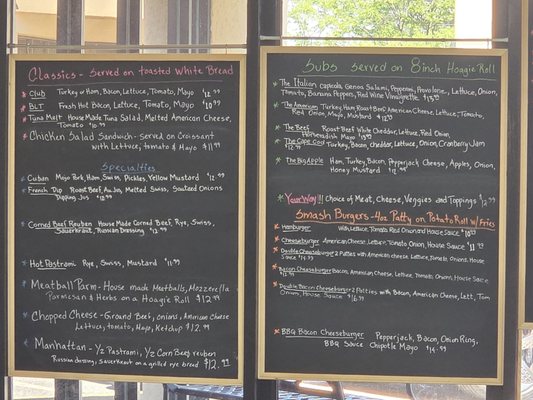 Classics - Served on toasted White Bread
Club Turkey or Ham, Bacon, Lettuce, Tomato, Mayo $12.99
BLT Fresh Hot Bacon, Lettuce, Tomato, Mayo $10.99
Tuna Melt House Made Tuna Salad, Melted American Cheese,
Tomato $10.99
Chicken Salad Sandwich - Served on Croissant
with Lettuce, tomato & Mayo $11.99
Specialties
Cuban Mojo Pork, Ham, Swiss, Pickles, Yellow Mustard $12.99
French Dip Roast Beef, Au Jus, Melted Swiss, Sauteed Onions
Dipping Jus
Corned Beef Reuben House Made Corned Beef, Rye, Swiss,
Sauerkraut, Russian Dressing $12.99
Hot Pastrami Rye, Swiss, Mustard $11.99
Meatball Parm - House made Meatballs, Mozzerella
Parmesan & Herbs on a Hoagie Roll $12.99
Chopped Cheese - Ground Beef, onions, American Cheese
Lettuce, tomato, Mayo, Ketchup $12.99
Manhattan - 1/2 Pastrami, 1/2 Corn Beef, reuben
Russian dressing, Sauerkraut on a grilled rye bread $12.99
Subs served on 8inch Hoagie Roll
The Italian Capicola, Genoa Salami, Pepperoni, Provolone, Lettuce, Onion,
Tomato, Banana Peppers, Red Wine Vinaigrette
The American Turkey, Ham, Roast Beef, American Cheese, Lettuce, Tomato,
Red Onion, Mayo, Mustard
The Beef Roast Beef, White Cheddar, Lettuce, Red Onion,
Horseradish Mayo
The Cape Cod Turkey, Bacon, Cheddar, Lettuce, Onion, Cranberry Jam
$12.99
The Big Apple Ham, Turkey, Bacon, Pepperjack Cheese, Apples, Onion,
Honey Mustard
Your Way!!! Choice of Meat, Cheese, Veggies and Toppings $12.99
Smash Burgers - 4oz Patty on Potato Roll w/ Fries
Hamburger with Lettuce, Tomato, Red Onion and House Sauce
Cheeseburger American Cheese, Lettuce, Tomato, Onion, House Sauce
Double Cheeseburger 2 Patties with American Cheese, Lettuce, Tomato, Onions, House
Sauce
Bacon Cheeseburger Bacon, American Cheese, Lettuce, Tomato, Onions, House Sauce
Double Bacon Cheeseburger 2 Patties with Bacon, American Cheese, Lett, Tom
Onion, House Sauce
BBQ Bacon Cheeseburger Pepperjack, Bacon, Onion Ring,
BBQ Sauce Chipotle Mayo $14.99